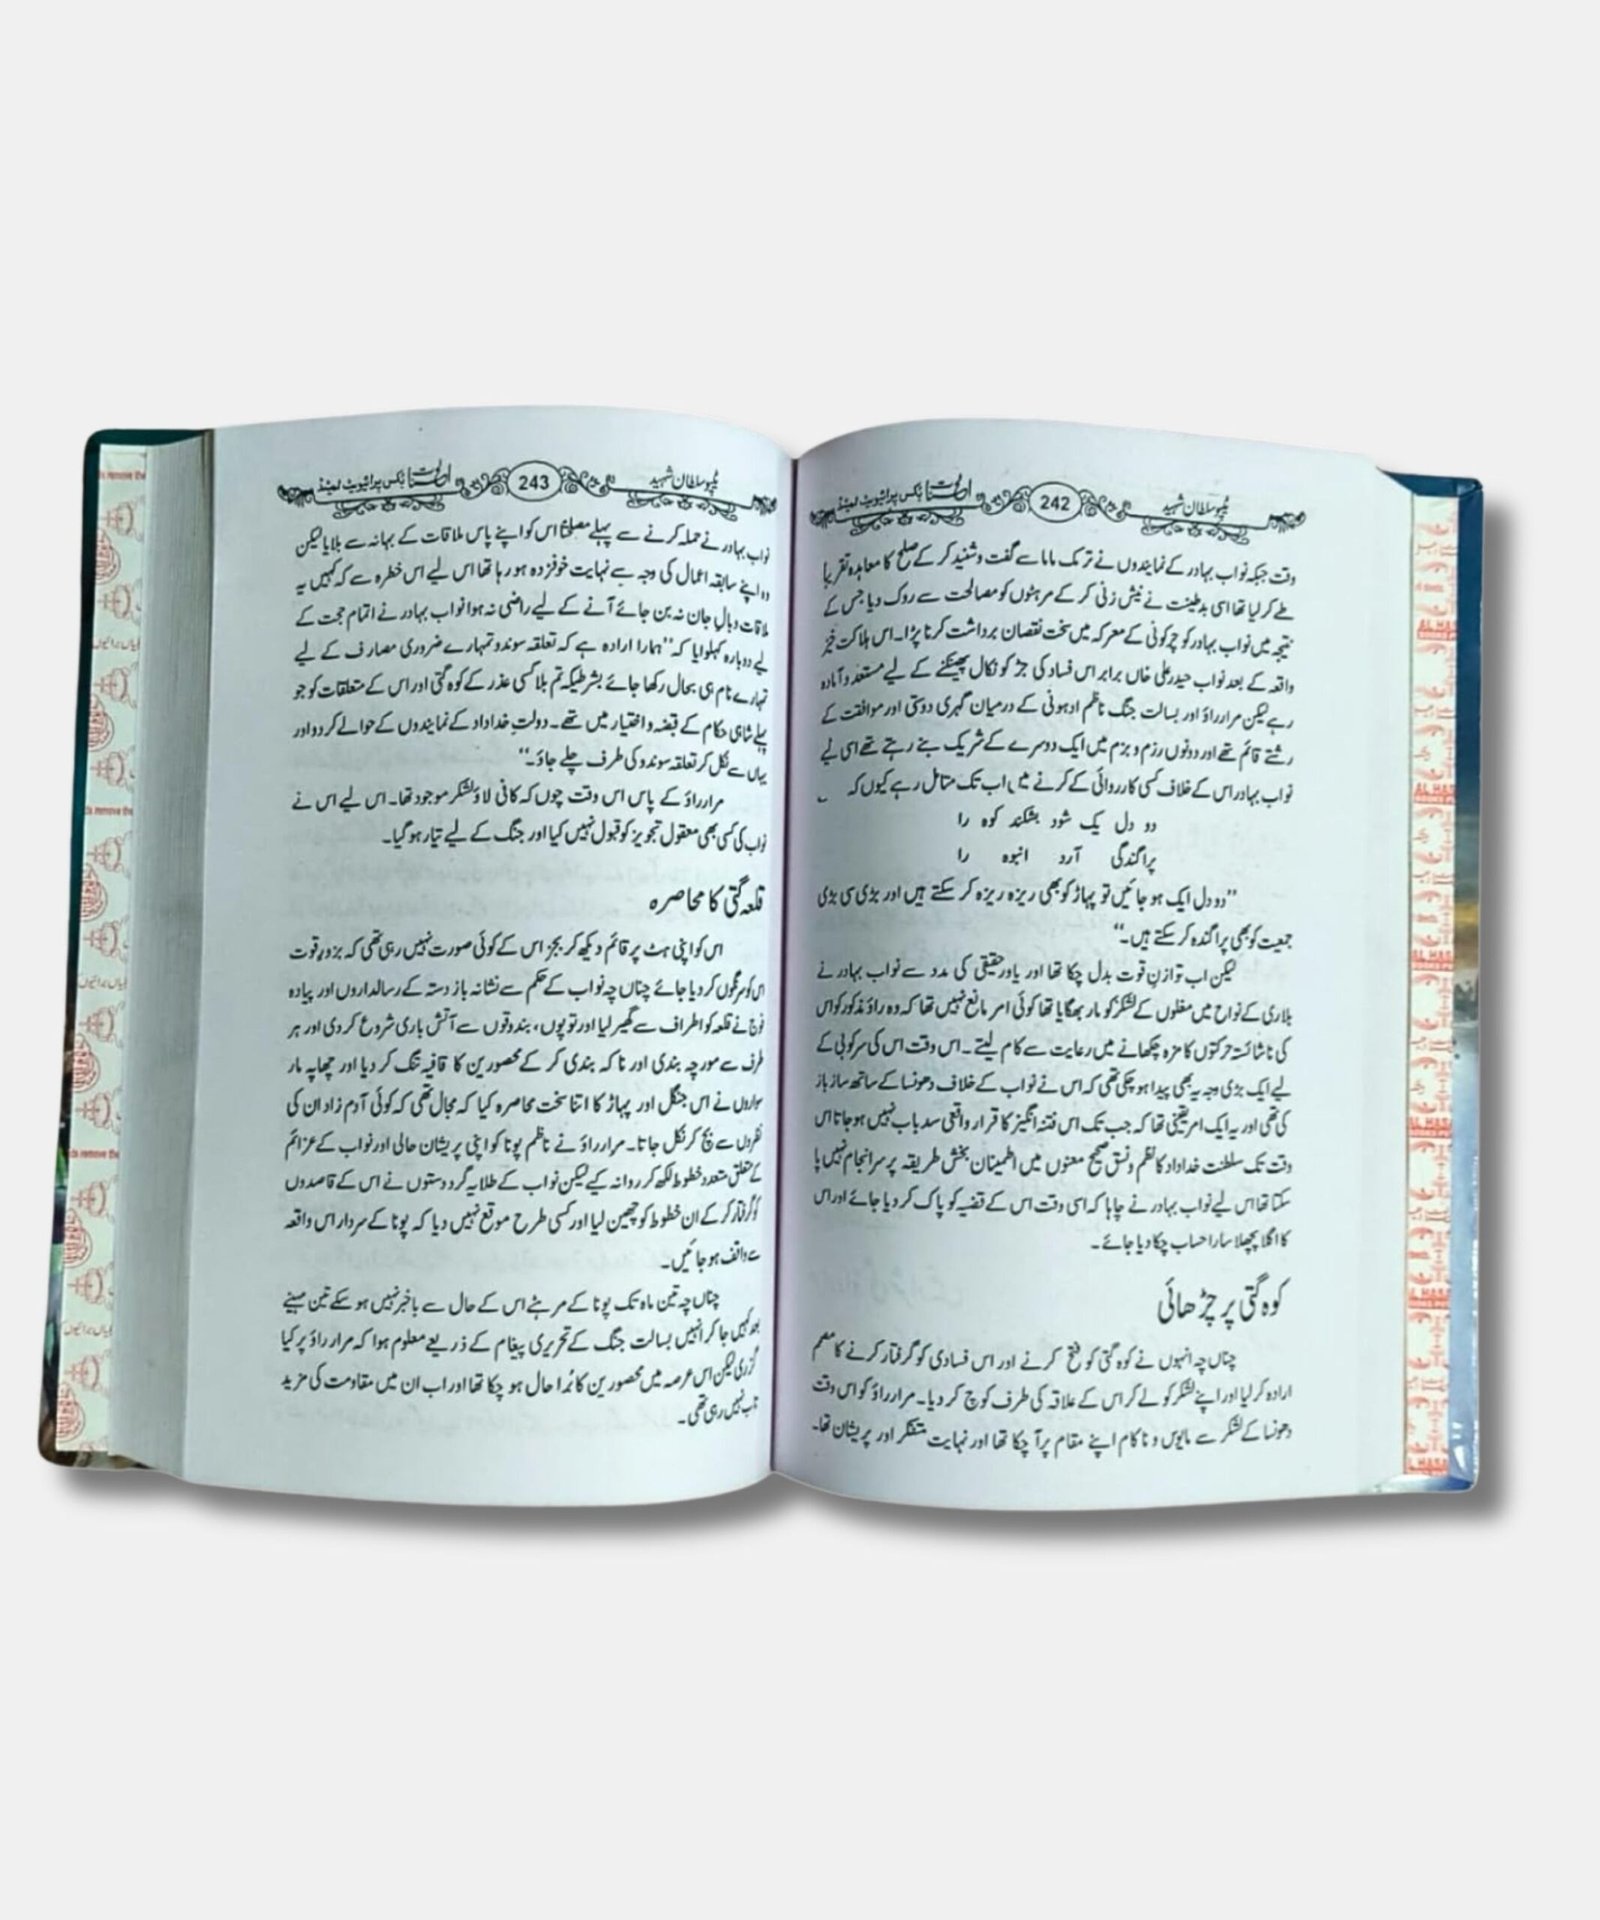 ٹیپو سلطان شہید
242
وقت جبکہ نواب بہادر کے نمایندوں نے ترمک ماما سے گفت و شنید کر کے صلح کا معاہدہ تقریباً
طے کر لیا تھا اسی بدطینت نے نیش زنی کر کے مرہٹوں کو مصالحت سے روک دیا جس کے
نتیجہ میں نواب بہادر کو چرکولی کے معرکہ میں سخت نقصان برداشت کرنا پڑا۔ اس ہلاکت خیز
واقعہ کے بعد نواب حیدر علی خاں برابر اس فساد کی جڑ کو نکال پھینکنے کے لیے مستعد و آمادہ
رہے لیکن مرار راؤ اور بسالت جنگ ناظم ادہونی کے درمیان گہری دوستی اور موافقت کے
رشتے قائم تھے اور دونوں رزم و بزم میں ایک دوسرے کے شریک بنے رہتے تھے اسی لیے
نواب بہادر اس کے خلاف کسی کارروائی کے کرنے میں اب تک متامل رہے کیوں کہ
دو دل یک شود بشکند کوہ را
پراگندگی آرد انبوہ را
”دو دل ایک ہو جائیں تو پہاڑ کو بھی ریزہ ریزہ کر سکتے ہیں اور بڑی سی بڑی
جمعیت کو بھی پراگندہ کر سکتے ہیں۔“
لیکن اب توازنِ قوت بدل چکا تھا اور یاور حقیقی کی مدد سے نواب بہادر نے
بلاری کے نواح میں مغلوں کے لشکر کو مار بھگایا تھا کوئی امر مانع نہیں تھا کہ وہ راؤ مذکور کو اس
کی ناشائستہ حرکتوں کا مزہ چکھانے میں رعایت سے کام لیتے۔ اس وقت اس کی سرکوبی کے
لیے ایک بڑی وجہ یہ بھی پیدا ہو چکی تھی کہ اس نے نواب کے خلاف دھونسا کے ساتھ ساز باز
کی تھی اور یہ ایک امر یقینی تھا کہ جب تک اس فتنہ انگیز کا قرار واقعی سدباب نہیں ہو جاتا اس
وقت تک سلطنت خداداد کا نظم و نسق صحیح معنوں میں اطمینان بخش طریقہ پر سرانجام نہیں پا
سکتا تھا اس لیے نواب بہادر نے چاہا کہ اسی وقت اس کے قضیہ کو پاک کر دیا جائے اور اس
کا اگلا پچھلا سارا حساب چکا دیا جائے۔
کوہ گتی پر چڑھائی
چناں چہ انہوں نے کوہ گتی کو فتح کرنے اور اس فسادی کو گرفتار کرنے کا مصمم
ارادہ کر لیا اور اپنے لشکر کو لے کر اس کے علاقہ کی طرف کوچ کر دیا۔ مرار راؤ کو اس وقت
دھونسا کے لشکر سے مایوس و ناکام اپنے مقام پر آ چکا تھا اور نہایت متفکر اور پریشان تھا۔
ٹیپو سلطان شہید
243
نواب بہادر نے حملہ کرنے سے پہلے مصلحتاً اس کو اپنے پاس ملاقات کے بہانہ سے بلایا لیکن
وہ اپنے سابقہ اعمال کی وجہ سے نہایت خوفزدہ ہو رہا تھا اس لیے اس خطرہ سے کہ کہیں یہ
ملاقات وبالِ جان نہ بن جائے آنے کے لیے راضی نہ ہوا نواب بہادر نے اتمام حجت کے
لیے دوبارہ کہلوایا کہ ”ہمارا ارادہ ہے کہ تعلقہ سوندو تمہارے ضروری مصارف کے لیے
تمہارے نام ہی بحال رکھا جائے بشرطیکہ تم بلا کسی عذر کے کوہ گتی اور اس کے متعلقات کو جو
پہلے شاہی حکام کے قبضہ و اختیار میں تھے۔ دولتِ خداداد کے نمایندوں کے حوالے کر دو اور
یہاں سے نکل کر تعلقہ سوندو کی طرف چلے جاؤ۔“
مرار راؤ کے پاس اس وقت چوں کہ کافی لاؤ لشکر موجود تھا۔ اس لیے اس نے
نواب کی کسی بھی معقول تجویز کو قبول نہیں کیا اور جنگ کے لیے تیار ہو گیا۔
قلعہ گتی کا محاصرہ
اس کو اپنی ہٹ پر قائم دیکھ کر بجز اس کے کوئی صورت نہیں رہی تھی کہ بزور قوت
اس کو سرنگوں کر دیا جائے چناں چہ نواب کے حکم سے نشانہ باز دستہ کے رسالداروں اور پیادہ
فوج نے قلعہ کو اطراف سے گھیر لیا اور توپوں، بندوقوں سے آتش باری شروع کر دی اور ہر
طرف سے مورچہ بندی اور ناکہ بندی کر کے محصورین کا قافیہ تنگ کر دیا اور چھاپہ مار
سواروں نے اس جنگل اور پہاڑ کا اتنا سخت محاصرہ کیا کہ مجال تھی کہ کوئی آدم زاد ان کی
نظروں سے بچ کر نکل جاتا۔ مرار راؤ نے ناظم پونا کو اپنی پریشان حالی اور نواب کے عزائم
کے متعلق متعدد خطوط لکھ کر روانہ کیے لیکن نواب کے طلایہ گرد دستوں نے اس کے قاصدوں
کو گرفتار کر کے ان خطوط کو چھین لیا اور کسی طرح موقع نہیں دیا کہ پونا کے سردار اس واقعہ
سے واقف ہو جائیں۔
چناں چہ تین ماہ تک پونا کے مرہٹے اس کے حال سے باخبر نہیں ہو سکے تین مہینے
بعد کہیں جا کر انہیں بسالت جنگ کے تحریری پیغام کے ذریعے معلوم ہوا کہ مرار راؤ پر کیا
گزری لیکن اس عرصہ میں محصورین کا بُرا حال ہو چکا تھا اور اب ان میں مقاومت کی مزید
تاب نہیں رہی تھی۔